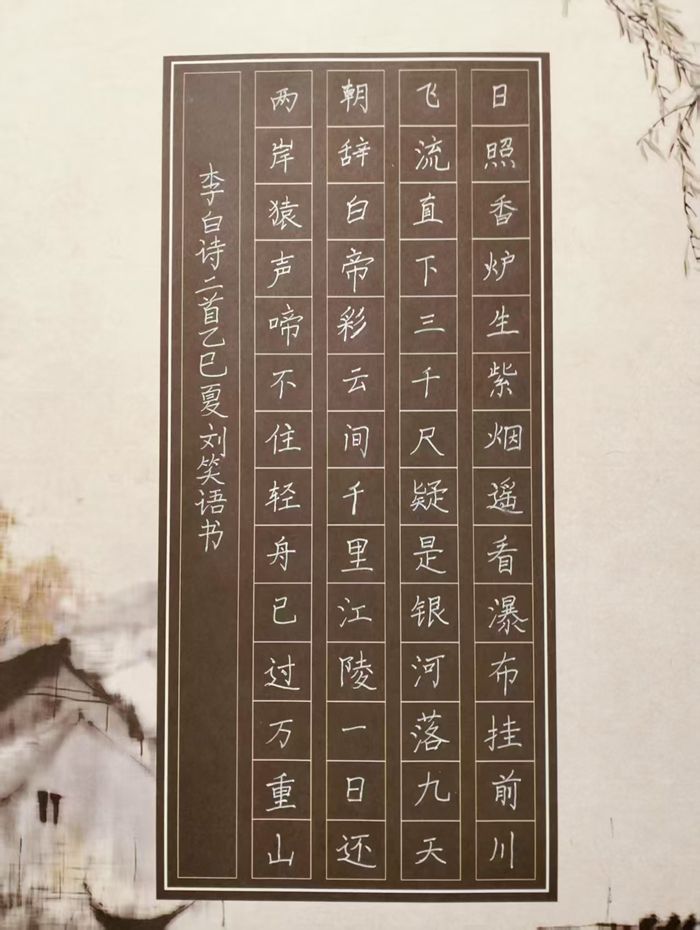 日照香炉生紫烟遥看瀑布挂前川
飞流直下三千尺疑是银河落九天
朝辞白帝彩云间千里江陵一日还
两岸猿声啼不住轻舟已过万重山
李白诗二首乙巳夏刘笑语书